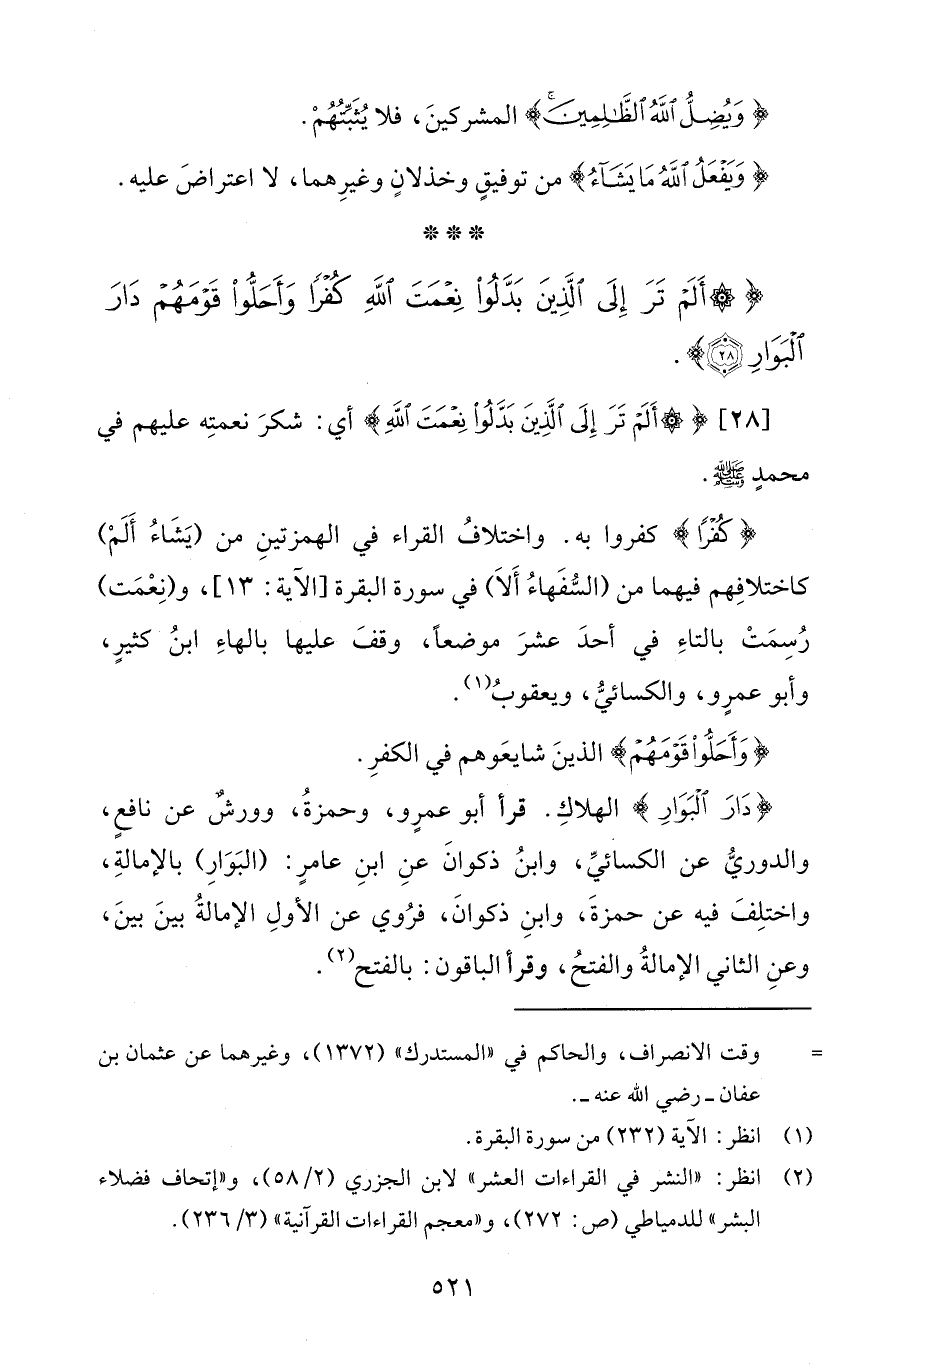 ﴿ وَيُضِلُّ ٱللَّهُ ٱلظَّٰلِمِينَۚ ﴾ المشركينَ، فلا يُثَبِّتُهُمْ.
﴿ وَيَفْعَلُ ٱللَّهُ مَا يَشَآءُ ﴾ من توفيقٍ وخذلانٍ وغيرِهما، لا اعتراضَ عليه.
* * *
﴿ ۞ أَلَمْ تَرَ إِلَى ٱلَّذِينَ بَدَّلُوا۟ نِعْمَتَ ٱللَّهِ كُفْرًا وَأَحَلُّوا۟ قَوْمَهُمْ دَارَ
ٱلْبَوَارِ ﴿٢٨﴾ ﴾.
[٢٨] ﴿ ۞ أَلَمْ تَرَ إِلَى ٱلَّذِينَ بَدَّلُوا۟ نِعْمَتَ ٱللَّهِ ﴾ أي: شكرَ نعمتِه عليهم في
محمدٍ ﷺ.
﴿ كُفْرًا ﴾ كفروا به. واختلافُ القراء في الهمزتينِ من (يَشَاءُ أَلَمْ)
كاختلافِهم فيهما من (السُّفَهاءُ أَلاَ) في سورة البقرة [الآية: ١٣]، و(نِعْمَت)
رُسِمَتْ بالتاءِ في أحدَ عشرَ موضعاً، وقفَ عليها بالهاءِ ابنُ كثيرٍ،
وأبو عمرٍو، والكسائيُّ، ويعقوبُ(١).
﴿ وَأَحَلُّوا۟ قَوْمَهُمْ ﴾ الذينَ شايعَوهم في الكفرِ.
﴿ دَارَ ٱلْبَوَارِ ﴾ الهلاكِ. قرأ أبو عمرٍو، وحمزةُ، وورشٌ عن نافعٍ،
والدوريُّ عن الكسائيِّ، وابنُ ذكوانَ عنِ ابنِ عامرٍ: (البَوَارِ) بالإمالةِ،
واختلِفَ فيه عن حمزةَ، وابنِ ذكوانَ، فرُوي عن الأولِ الإمالةُ بينَ بينَ،
وعنِ الثاني الإمالةُ والفتحُ، وقرأ الباقون: بالفتح(٢).
= وقت الانصراف، والحاكم في «المستدرك» (١٣٧٢)، وغيرهما عن عثمان بن
عفان ـ رضي الله عنه ـ.
(١) انظر: الآية (٢٣٢) من سورة البقرة.
(٢) انظر: «النشر في القراءات العشر» لابن الجزري (٢/ ٥٨)، و«إتحاف فضلاء
البشر» للدمياطي (ص: ٢٧٢)، و«معجم القراءات القرآنية» (٣/ ٢٣٦).
٥٢١